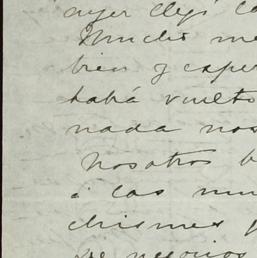 ayer llegó la
Mucho me
bien y esper
habrá vuelto
nada nos
Nosotros b
á las
chismes
de negocios